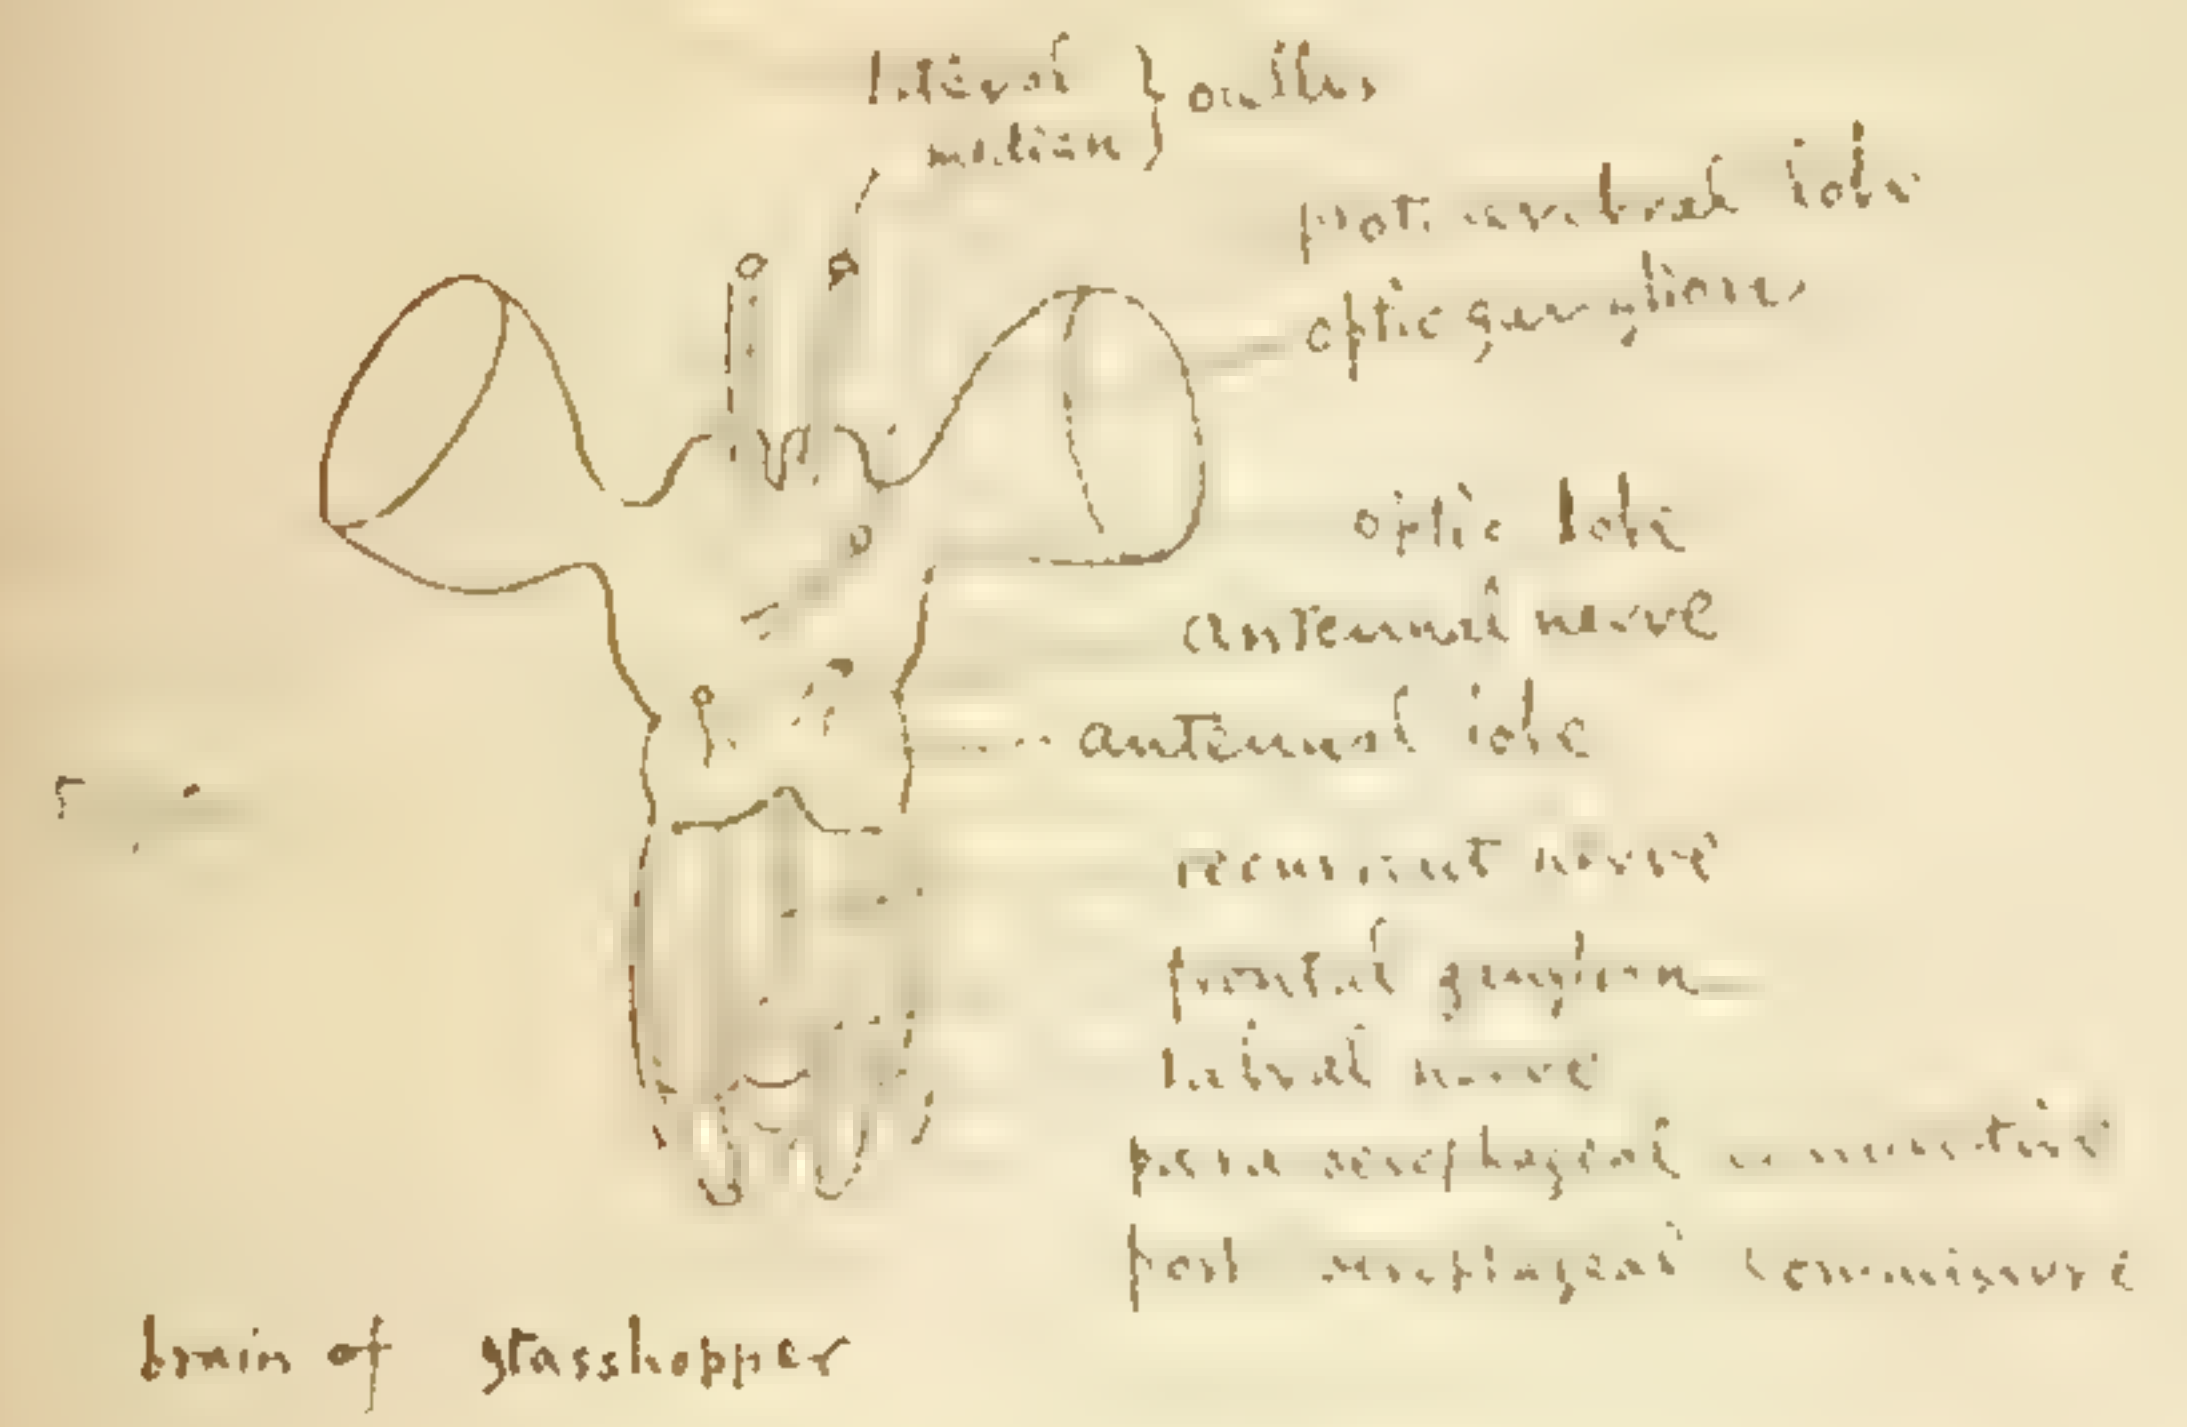 lateral } ocellus
median
protocerebral lobe
optic ganglion
optic lobe
antennal nerve
antennal lobe
recurrent nerve
frontal ganglion
labral nerve
para oesophageal connective
post oesophageal commissure
brain of grasshopper